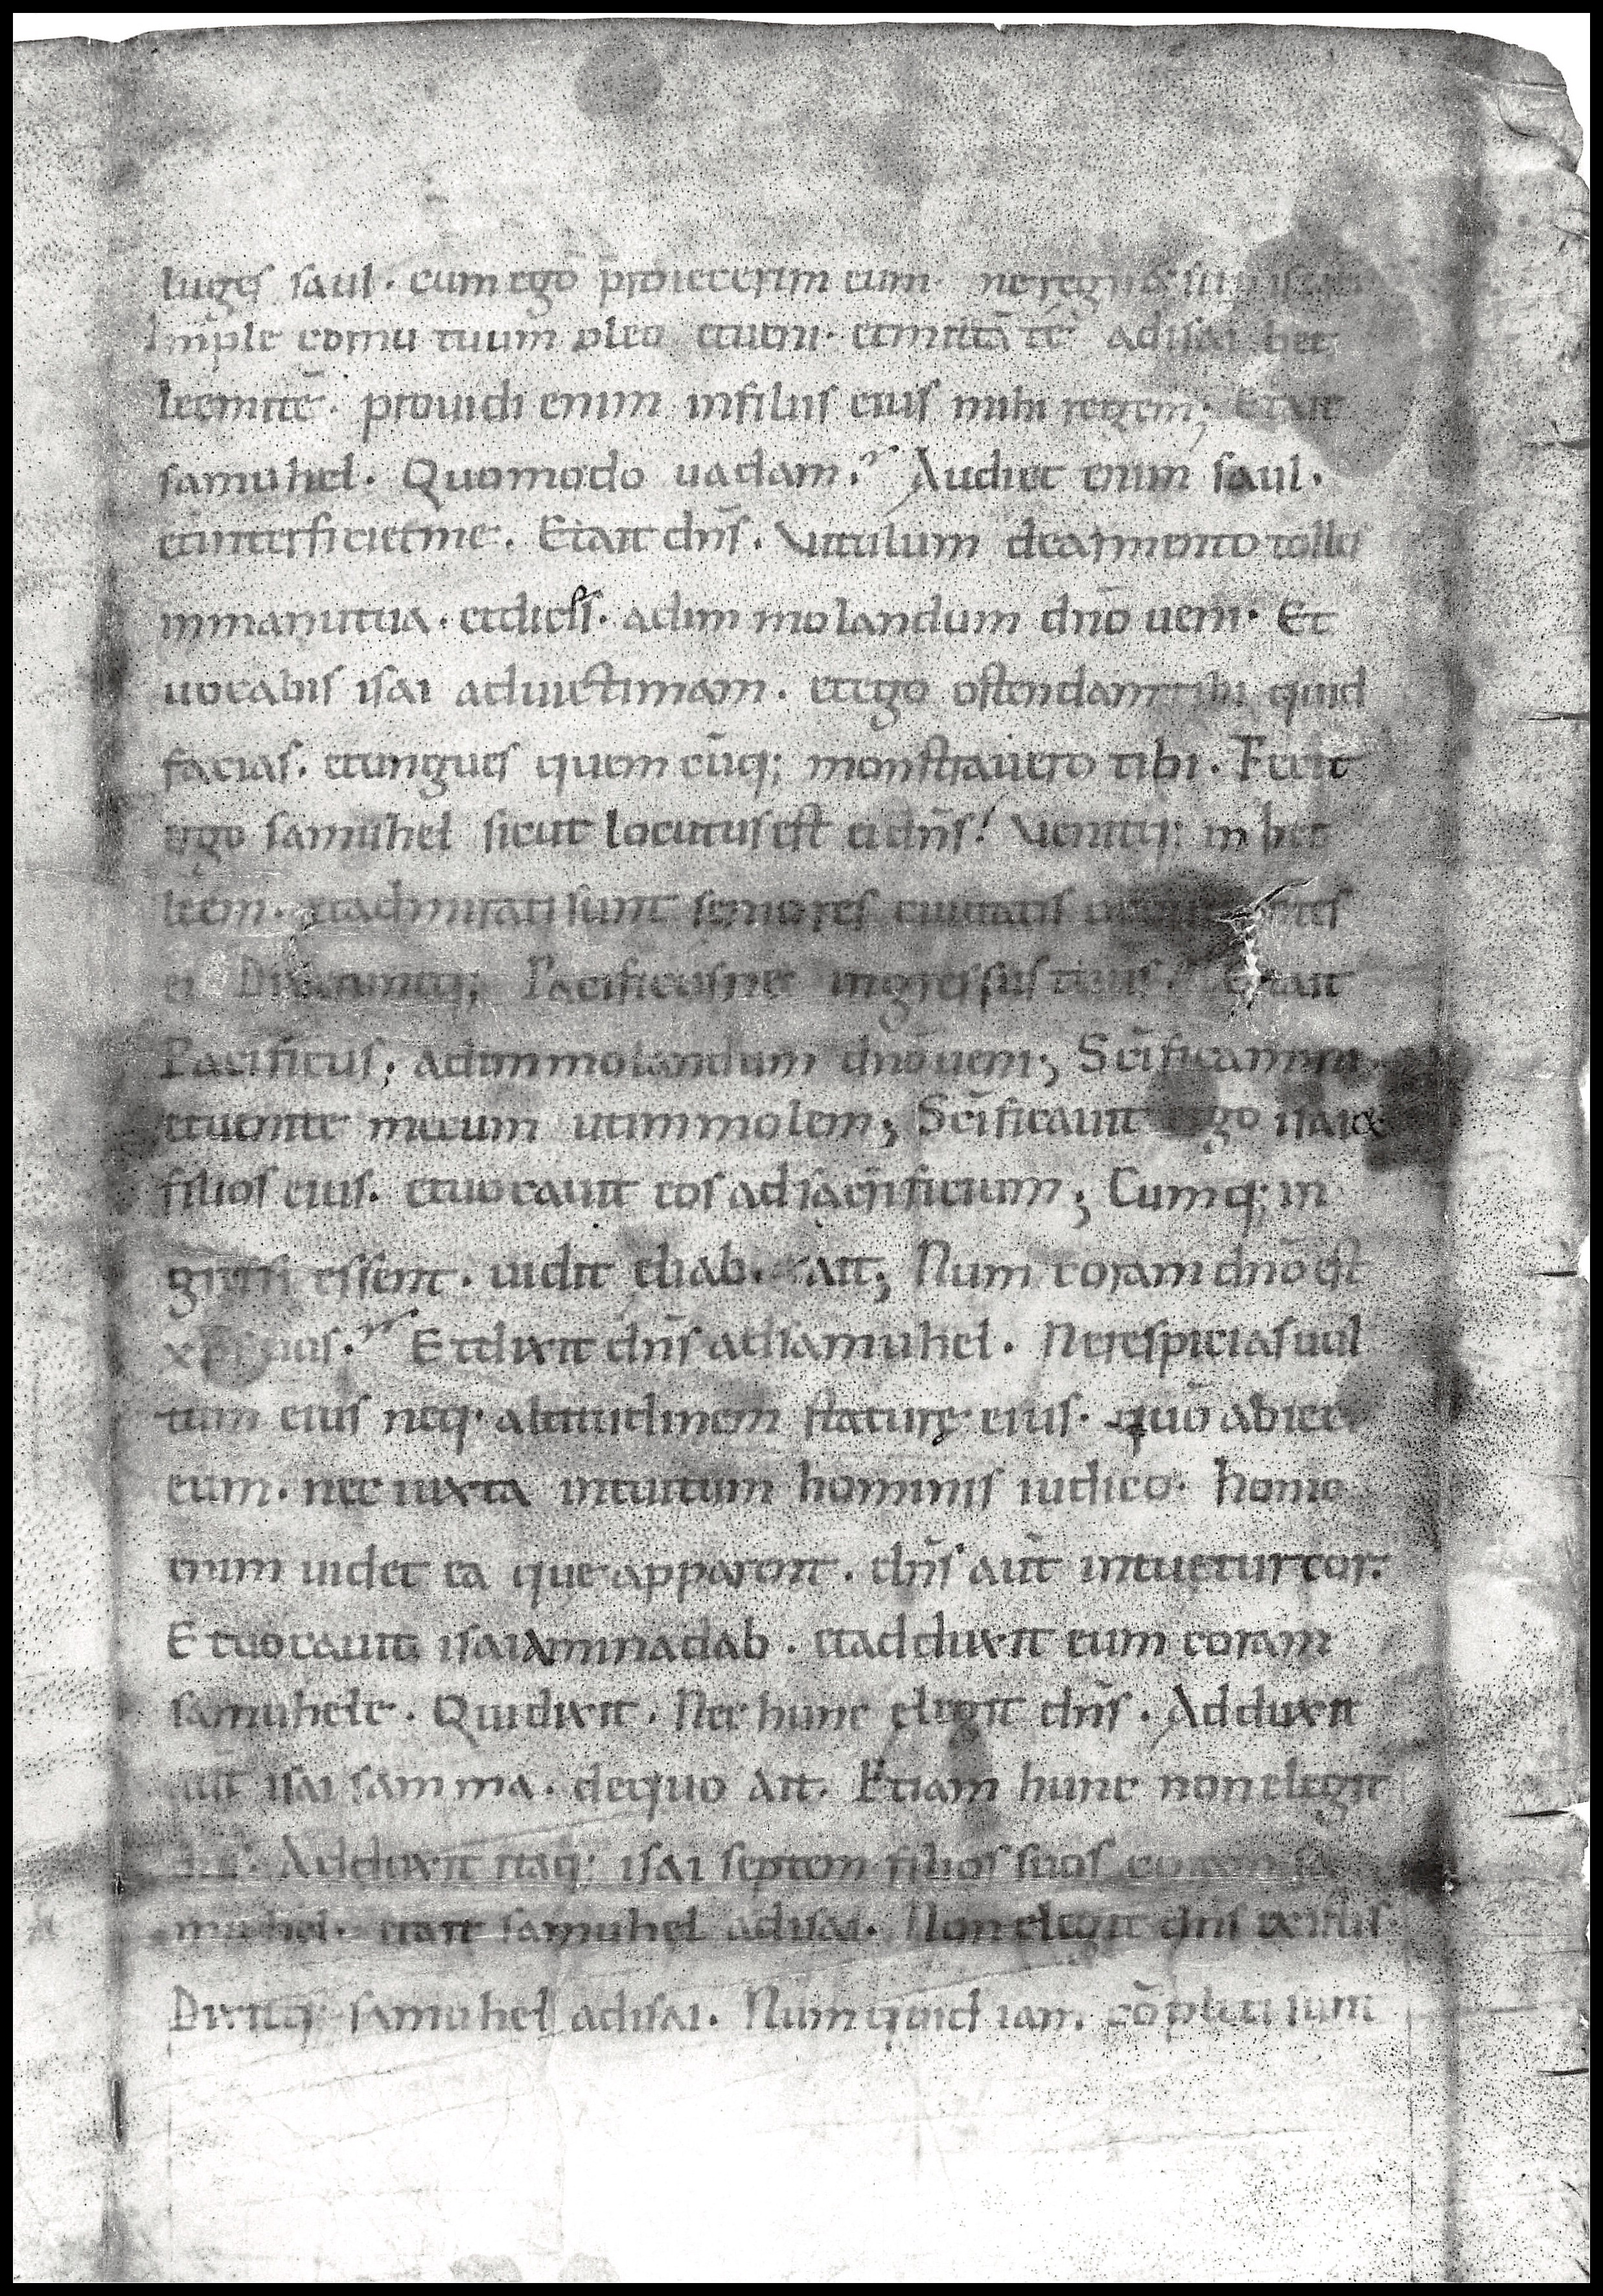 luges saul. cum ego proiecerim eum. ne regnet sup isrł
Imple cornu tuum oleo etueni. etmittā té adisai bet
leemitē. prouidi enim infiliis eius mihi regem; Etait
samuhel. Quomodo uadam? Audiet enim saul.
etinterficietme. Etait dn̄s. Vitulum dearmento tolles
inmanutua. etdices. adim molandum dn̄o ueni. Et
uocabis isai aduictimam. etego ostendamtibi quid
facias. etungues quem cūq; monstrauero tibi. Fecit
ergo samuhel sicut locutusest ei dn̄s. Venitq; in bet
leem. etadmirati sunt seniores ciuitatis
ei Dixeruntq; Pacificusne ingressus tuus? Etait
Pacificus; adimmolandum dn̄o ueni; Sc̄ificamini
etuenite mecum utimmolem; Sc̄ificauit ergo isai &
filios eius. etuocauit eos ad sacrificium; Cumq; in
gressi essent. uidit eliab. ait; Num coram dn̄o est
xp̄s uos? Etdixit dn̄s adsamuhel. Nerespicias uul
tum eius neq; altitudinem staturę eius. quō abieci
eum. nec iuxta intuitum hominis iudico. homo
enim uidet ea que apparent. dn̄s aūt intuetur cor.
Etuocauit isai aminadab. etadduxit eum coram
samuhele. Qui dixit. Nec hunc elegit dn̄s. Adduxit
aūt isai samma. dequo ait. Etiam hunc non elegit
dn̄s. Adduxit itaq; isai septem filios suos coram sa
muhel. etait samuhel adisai. Non elegit dn̄s existis
Dixitq; samuhel adisai. Numquid iam cōpleti sunt